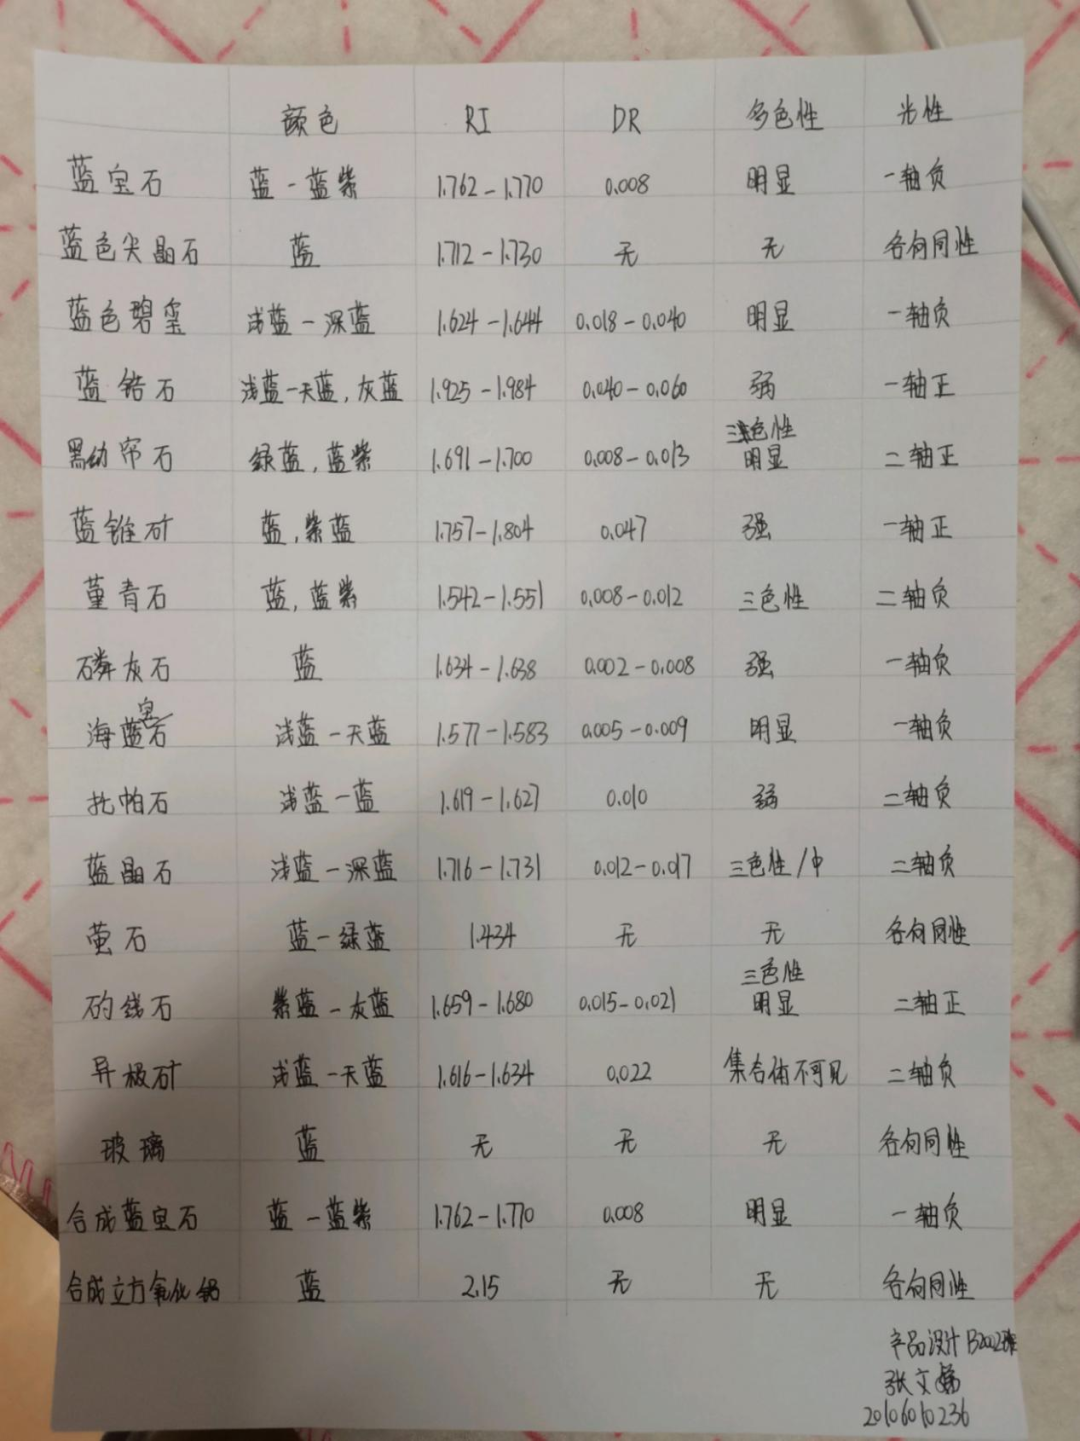 颜色 RI DR 多色性 光性
蓝宝石 蓝-蓝紫 1.762-1.770 0.008 明显 一轴负
蓝色尖晶石 蓝 1.712-1.730 无 无 各向同性
蓝色碧玺 浅蓝-深蓝 1.624-1.644 0.018-0.040 明显 一轴负
蓝锆石 浅蓝-天蓝,灰蓝 1.925-1.984 0.040-0.060 弱 一轴正
三色性
黑幼帘石 绿蓝,蓝紫 1.691-1.700 0.008-0.013 明显 二轴正
蓝锥矿 蓝,紫蓝 1.757-1.804 0.047 强 一轴正
堇青石 蓝,蓝紫 1.542-1.551 0.008-0.012 三色性 二轴负
磷灰石 蓝 1.634-1.638 0.002-0.008 强 一轴负
海蓝宝石 浅蓝-天蓝 1.577-1.583 0.005-0.009 明显 一轴负
托帕石 浅蓝-蓝 1.619-1.627 0.010 弱 二轴负
蓝晶石 浅蓝-深蓝 1.716-1.731 0.012-0.017 三色性/中 二轴负
萤石 蓝-绿蓝 1.434 无 无 各向同性
三色性
矽线石 紫蓝-灰蓝 1.659-1.680 0.015-0.021 明显 二轴正
异极矿 浅蓝-天蓝 1.616-1.634 0.022 集合体不可见 二轴负
玻璃 蓝 无 无 无 各向同性
合成蓝宝石 蓝-蓝紫 1.762-1.770 0.008 明显 一轴负
合成立方氧化铝 蓝 2.15 无 无 各向同性
产品设计B2002班
张文
20106010236